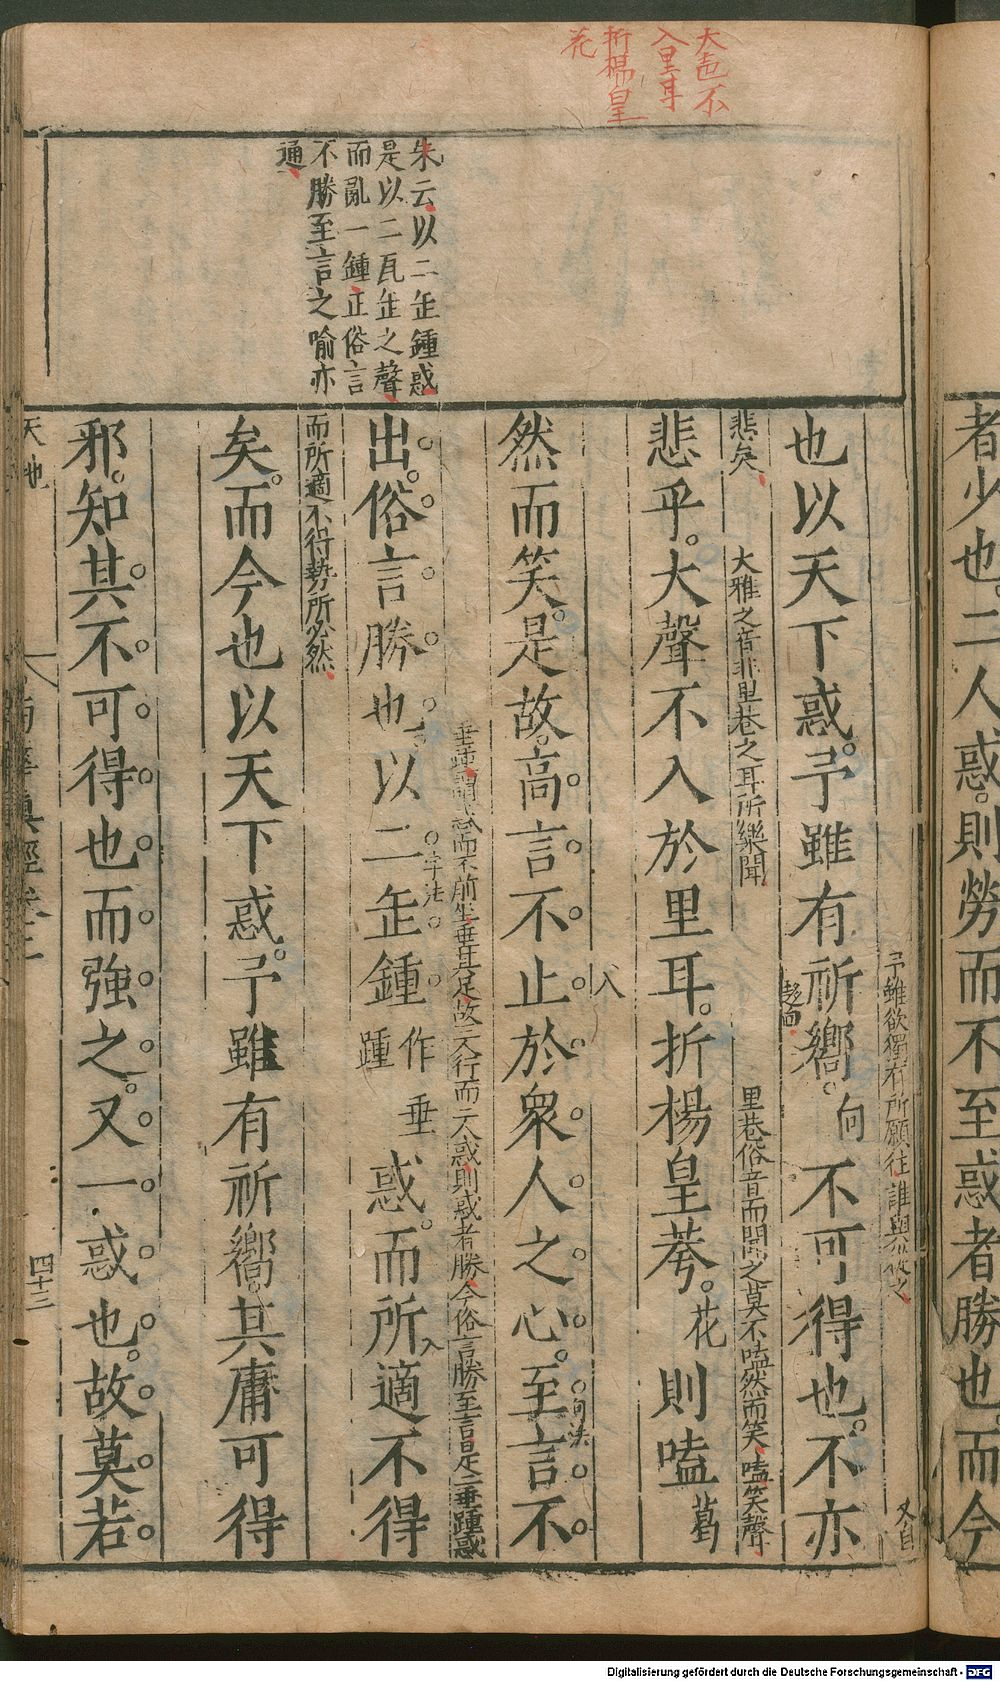 大声不
入里耳
折楊皇
花
朱云以二缶鍾惑
是以二瓦缶之聲
而亂一鍾正俗言
不勝至言之喻亦
通
者少也二人惑則勞而不至惑者勝也而今
予雖欲獨有所願往誰與從之
又自
也以天下惑予雖有祈嚮向不可得也不亦
趨向
悲矣
大雅之音非里巷之耳所樂聞
里巷俗音而聞之莫不嗑然而笑嗑笑聲
悲乎大聲不入於里耳折楊皇荂花則嗑葛
入
然而笑是故高言不止於衆人之心至言不
句法
垂踵謂惑而不前坐垂其足故三人行而二人惑則惑者勝今俗言勝至言是二垂踵惑
出俗言勝也以二缶鍾作垂踵惑而所適不得
言
字法
入
而所適不得勢所必然
矣而今也以天下惑予雖有祈嚮其庸可得
邪知其不可得也而強之又一惑也故莫若
天地
南華真經卷三
四十三
Digitalisierung gefördert durch die Deutsche Forschungsgemeinschaft - DFG